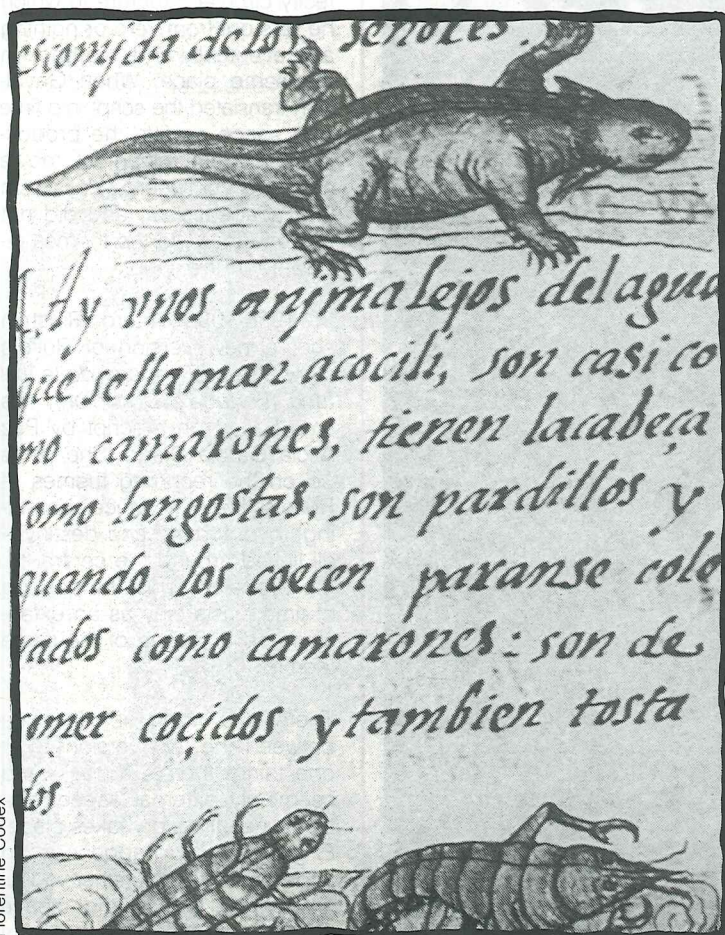 escomjda delos señores.
Ay vnos anjmalejos delagua
que sellaman acocili, son casi co
mo camarones, tienen lacabeça
como langostas, son pardillos y
quando los coecen paranse colo
rados como camarones: son de
comer coçidos y tambien tosta
dos
Florentine Codex